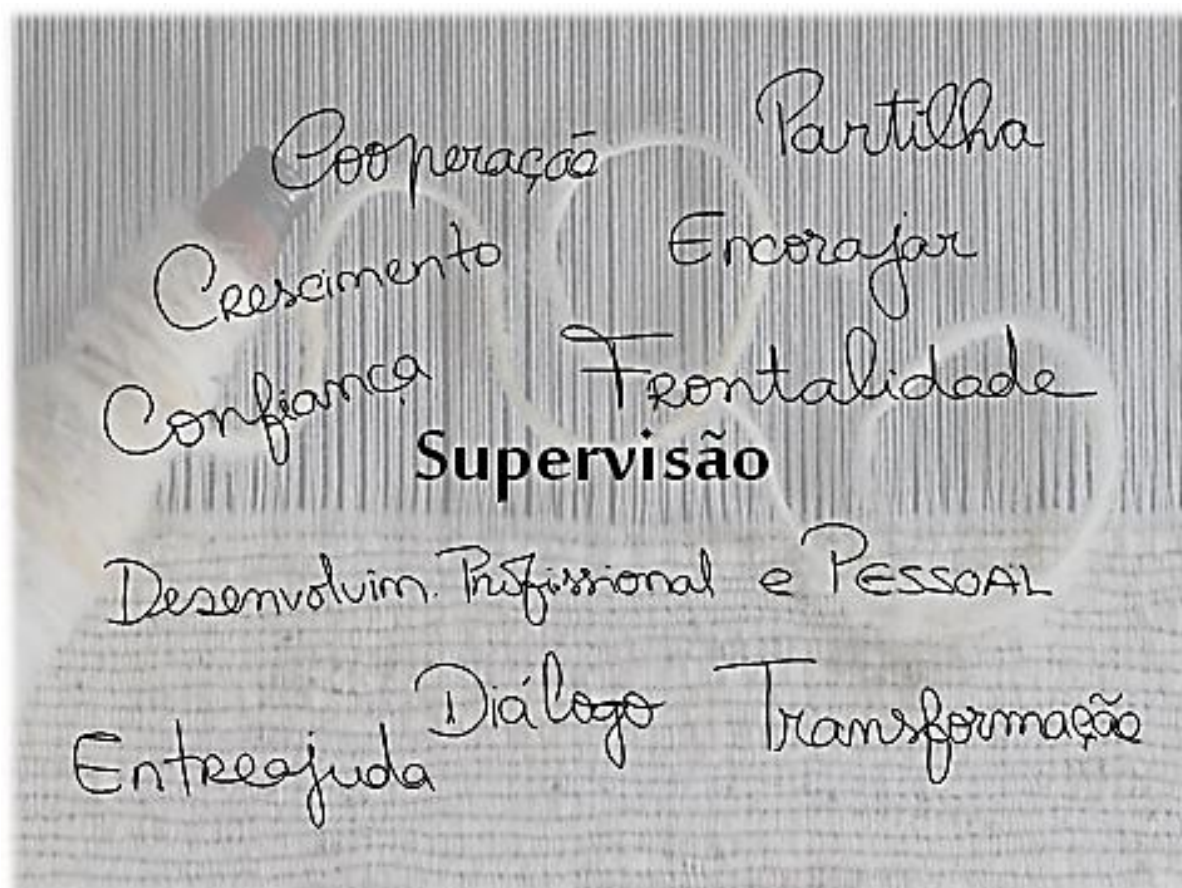 Cooperação
Partilha
Crescimento
Encorajar
Confiança
Frontalidade
Supervisão
Desenvolvim. Profissional e PESSOAL
Diálogo
Transformação
Entreajuda